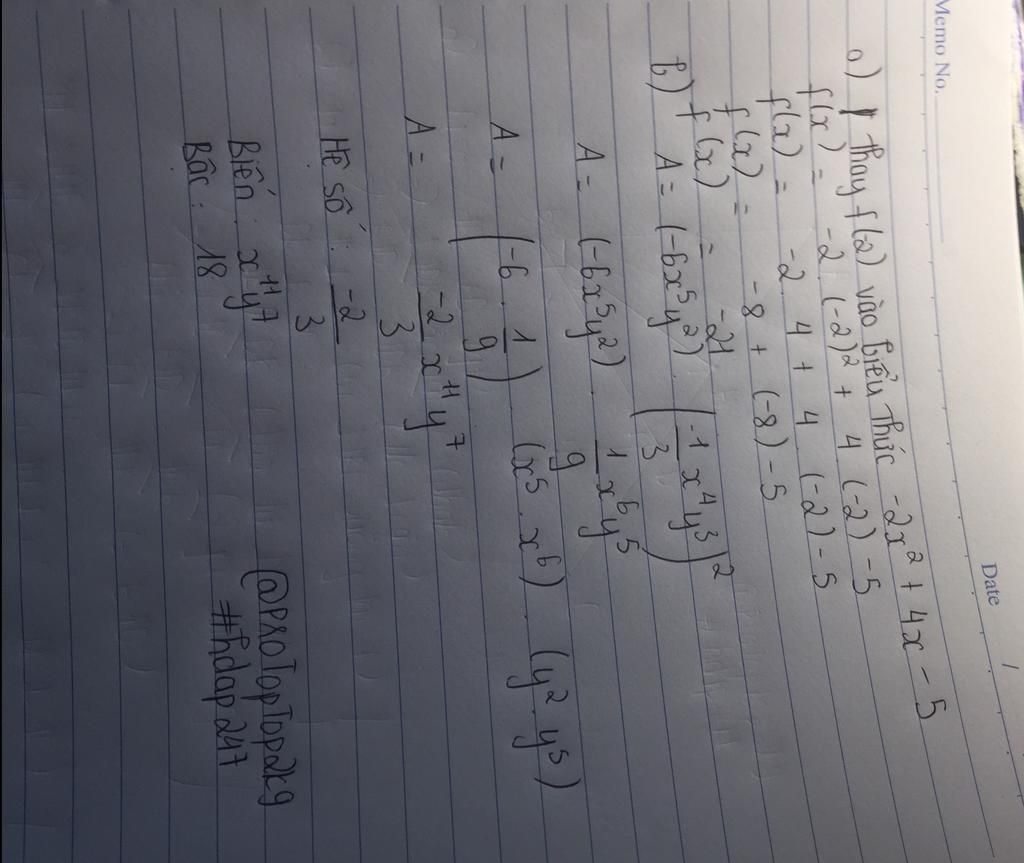 Memo No.
Date /
a) Thay f(2) vào biểu thức -2x² + 4x - 5
f(x) = -2 . (-2)² + 4 (-2) - 5
f(x) = -2 . 4 + 4 . (-2) - 5
f(x) = -8 + (-8) - 5
f(x) = -21
b) A = (-6x⁵y²) . (-1/3 x⁴y³)²
A = (-6x⁵y²) . 1/9 x⁶y⁵
A = (-6 . 1/9) . (x⁵ . x⁶) . (y² . y⁵)
A = -2/3 x¹¹y⁷
Hệ số : -2/3
Biến : x¹¹y⁷
Bậc : 18
@PROTopTop2k9
#hdap247